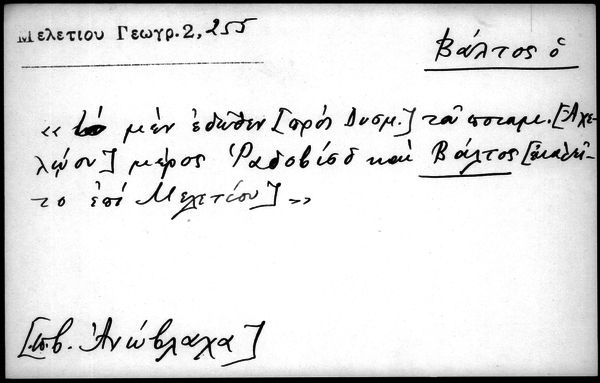 Μελετίου Γεωγρ. 2, 255
Βάλτος ὁ
« τὸ μὲν ἐδῶθεν [πρὸς Δυσμ.] τοῦ ποταμ. [Ἀχε-
λῴου] μέρος Ῥαδοβίσδ καὶ Βάλτος [ἐκαλεῖ-
το ἐπὶ Μελετίου] »
[πβ. Ἀνώβλαχα]